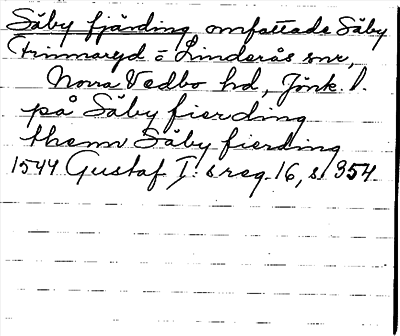 Säby fjärding omfattade Säby
Frinnaryd o Linderås snr,
Norra Vedbo hd, Jönk. l.
på Säby fierding
themn Säby fierding
1544 Gustaf I:s reg. 16, s. 354.